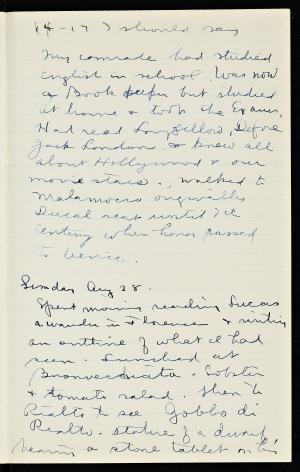 14-17 I should say
My comrade had studied
English in school. Was now
a Book keeper but studied
at home & took the Exams.
Had read Longfellow, Defoe
Jack London & knew all
about Hollywood & our
movie stars. walked to
Malamocco originally
Ducal seat until 7th
century when honor passed
to Venice.
Sunday Aug 28.
Spent morning reading Lucas
a wanderer in Florence & writing
an outline of what I had
seen. Lunched at
Lobster
& tomato salad. Then to
Rialto to see Gobbo di
Rialto. statue of a dwarf
bearing a stone tablet on his